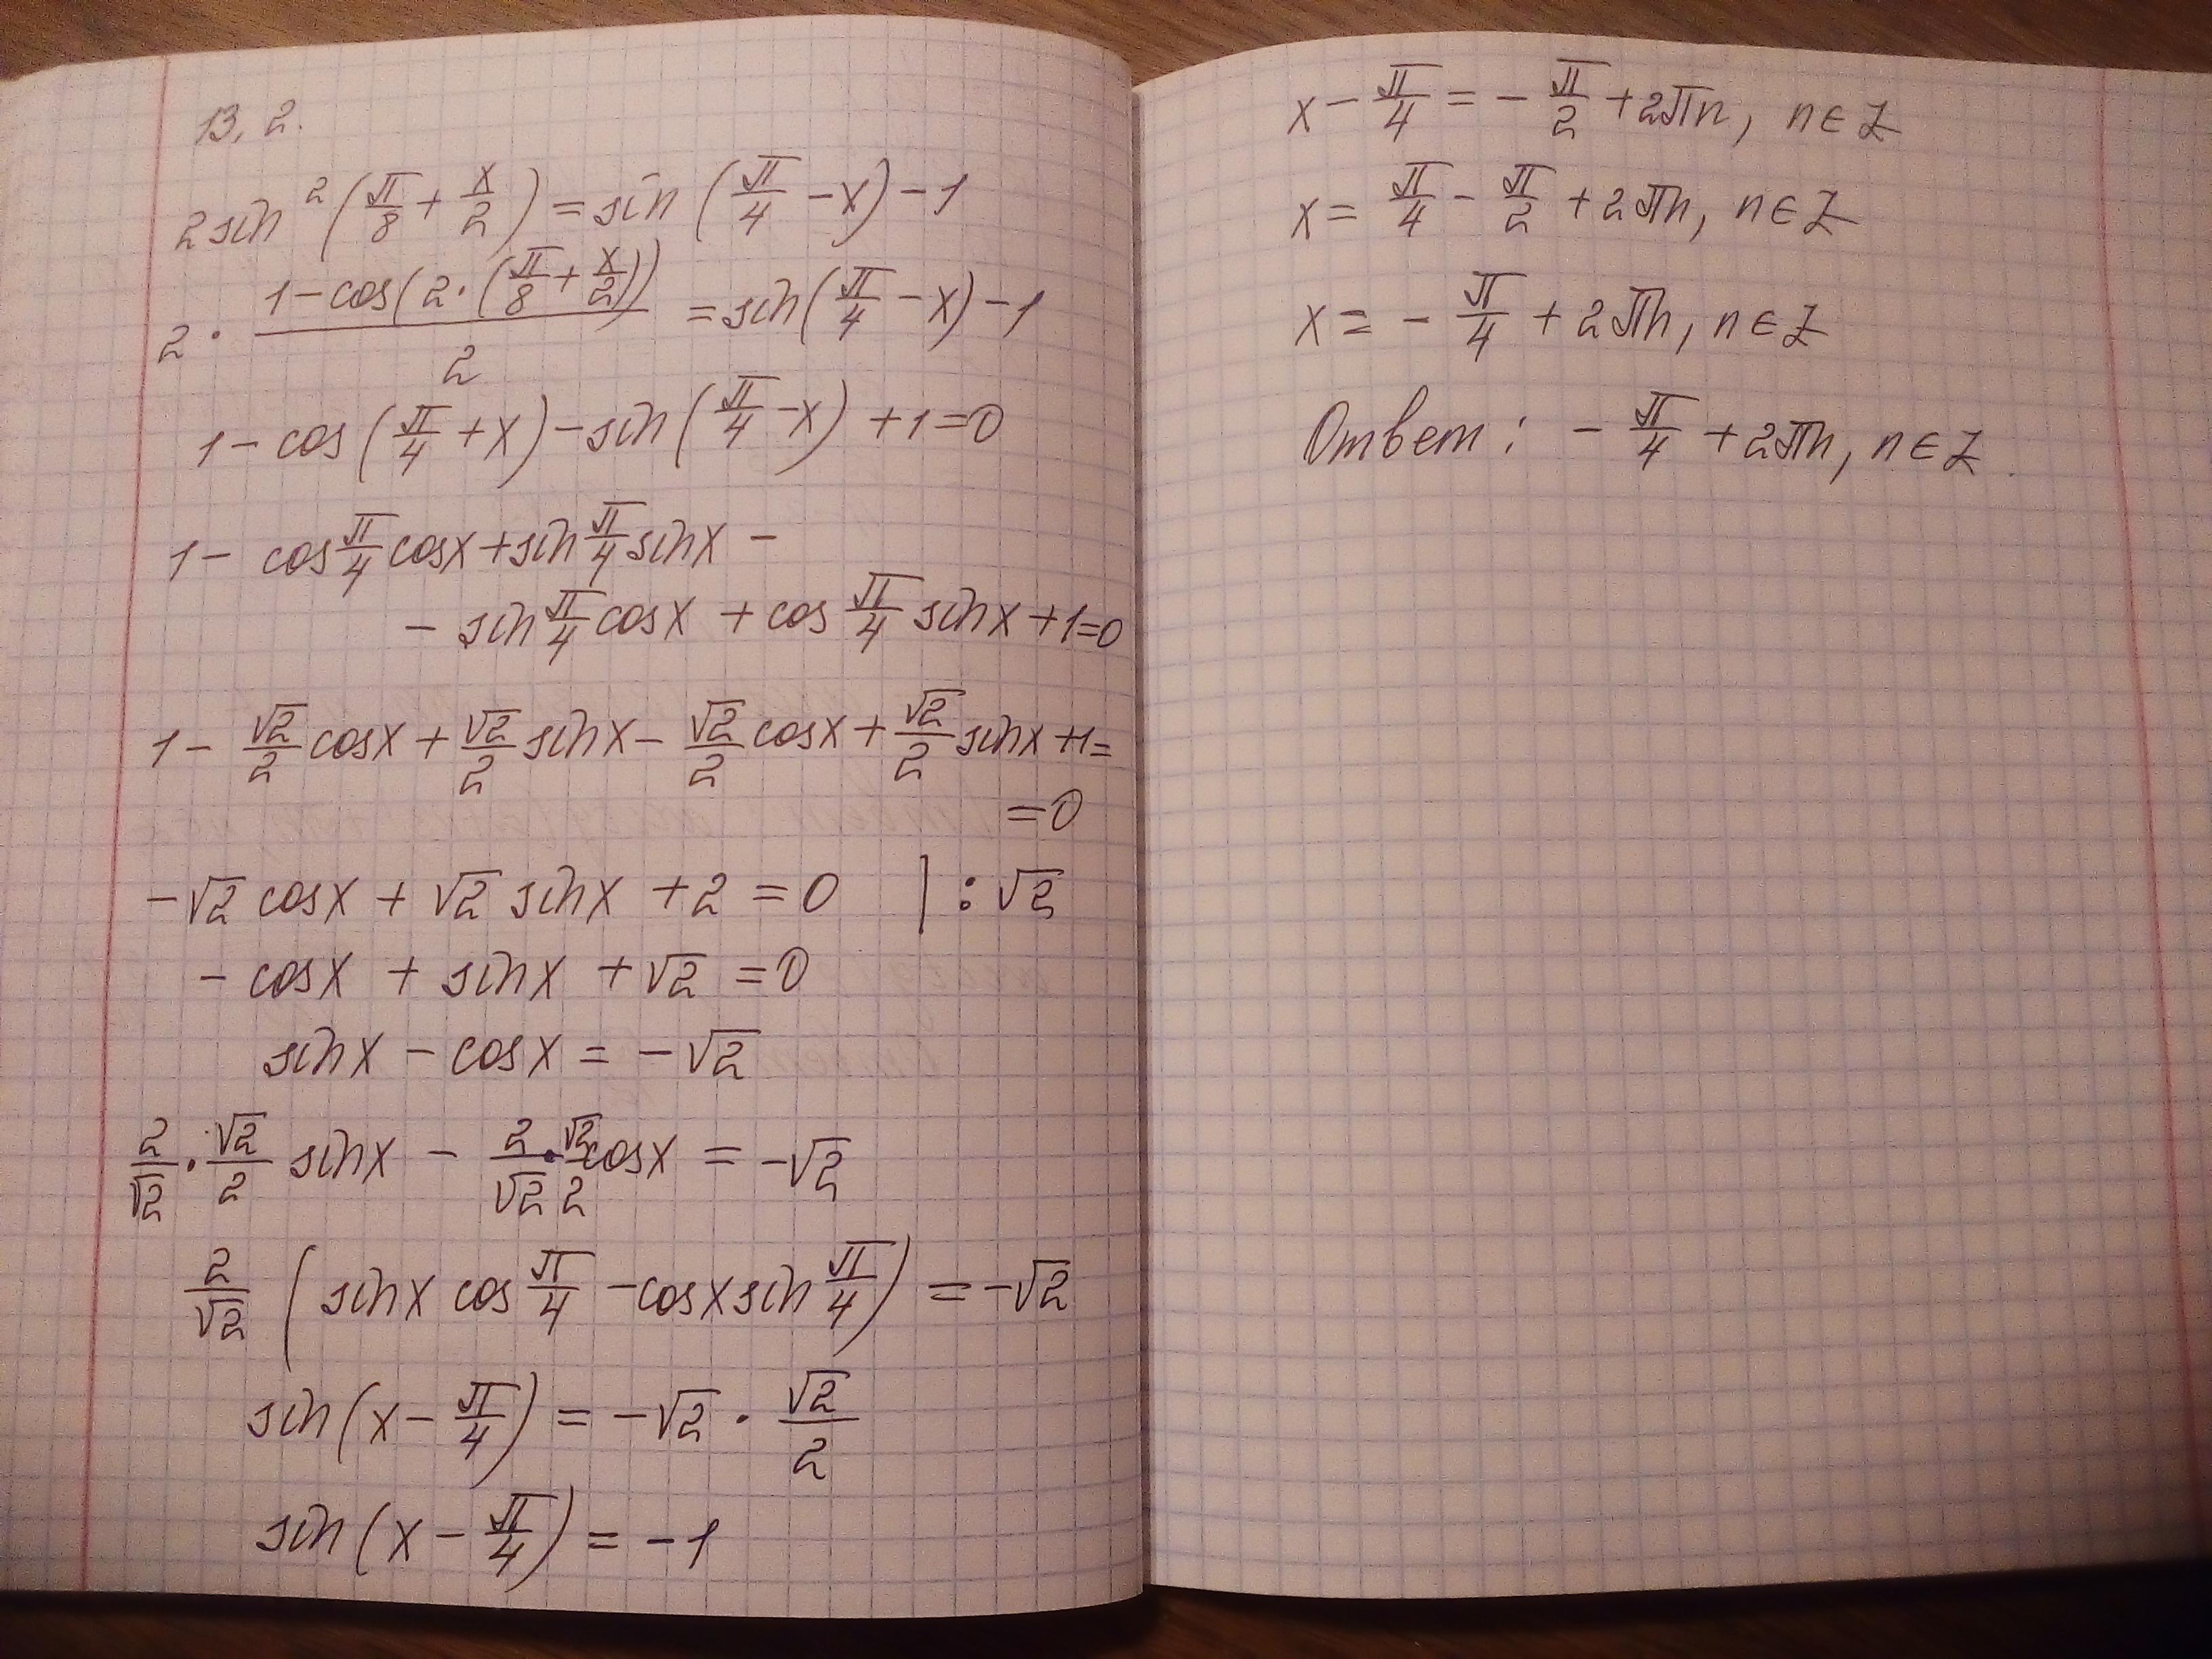 13, 2.
2sin²(π/8 + x/2) = sin(π/4 − x) − 1
2 · (1 − cos(2 · (π/8 + x/2)))/2 = sin(π/4 − x) − 1
1 − cos(π/4 + x) − sin(π/4 − x) + 1 = 0
1 − cos π/4 cosx + sin π/4 sinx −
− sin π/4 cosx + cos π/4 sinx + 1 = 0
1 − √2/2 cosx + √2/2 sinx − √2/2 cosx + √2/2 sinx + 1 =
= 0
−√2 cosx + √2 sinx + 2 = 0 | : √2
− cosx + sinx + √2 = 0
sinx − cosx = −√2
2/√2 · √2/2 sinx − 2/√2 · √2/2 cosx = −√2
2/√2 (sinx cos π/4 − cosx sin π/4) = −√2
sin(x − π/4) = −√2 · √2/2
sin(x − π/4) = −1
x − π/4 = − π/2 + 2πn, n ∈ Z
x = π/4 − π/2 + 2πn, n ∈ Z
x = − π/4 + 2πn, n ∈ Z
Ответ: − π/4 + 2πn, n ∈ Z.